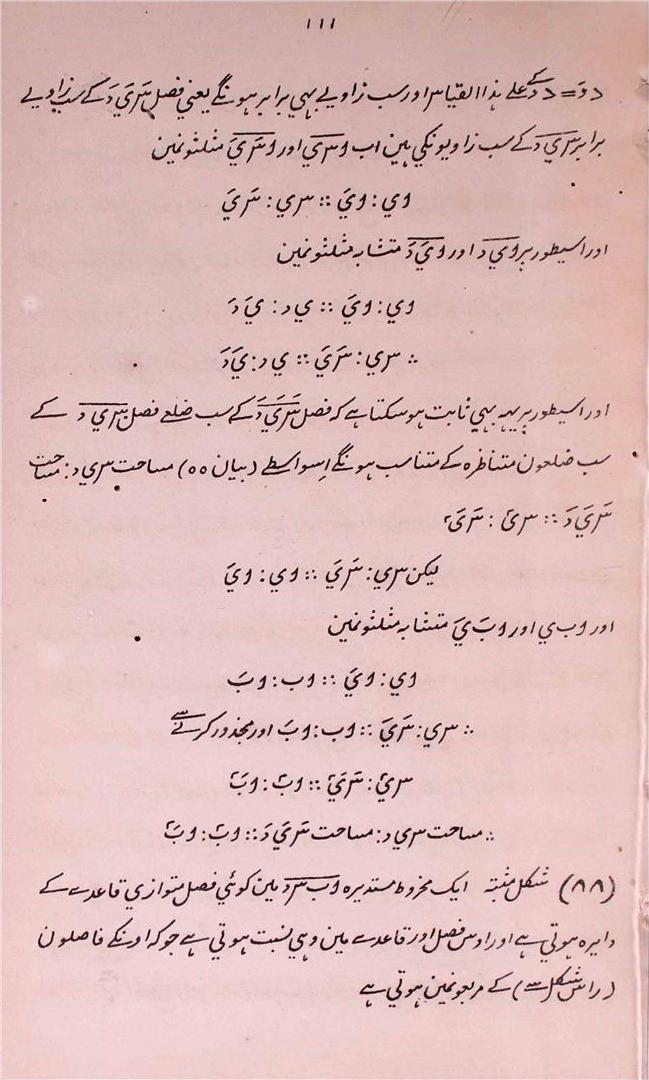 ۱۱۱
د دَ = د دَ کے علے ہذا القیاس اور سب زاویے بہی برابر ہونگے یعنی فصل سَ يَ دَ کے سب زاویے
برابر س ي د کے سب زاویونکی ہین اب و س ي اور و سَ يَ مثلثونمین
وي : ويَ :: س ي : سَ يَ
اور اسیطور پر و ي د اور و يَ دَ متشابہ مثلثونمین
وي : ويَ :: ي د : يَ دَ
∴ س ي : سَ يَ :: ي د : يَ دَ
اور اسیطور پر یہہ بہی ثابت ہوسکتا ہے کہ فصل سَ يَ دَ کے سب ضلعے فصل س ي د کے
سب ضلعون متناظرہ کے متناسب ہونگے اِسواسطے (بیان ۵۵) مساحت س ي د : مساحت
سَ يَ دَ :: س ي٢ : سَ يَ٢
لیکن س ي : سَ يَ :: وي : ويَ
اور و ب ي اور و بَ يَ متشابہ مثلثونمین
وي : ويَ :: و ب : و بَ
∴ س ي : سَ يَ :: و ب : و بَ اور مجذور کرنے سے
س ي٢ : سَ يَ٢ :: و ب٢ : و بَ٢
∴ مساحت س ي د : مساحت سَ يَ دَ :: و ب٢ : و بَ٢
(۸۸) شکل مثبتہ ایک مخروط مستدیرہ و ب س د مین کوئی فصل متوازی قاعدے کے
دایرہ ہوتی ہے اور اوس فصل اور قاعدے مین وہی نسبت ہوتی ہے جو کہ اونکے فاصلون
(راس شکل سے) کے مربعونمین ہوتی ہے